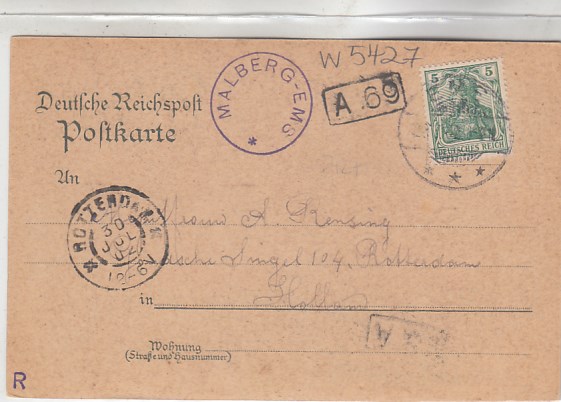 W 5427
MALBERG-EMS
*
A.69
5 5
DEUTSCHES REICH
* * *
Deutsche Reichspost
Postkarte
An
ROTTERDAM
30
JUL
02
A. Rensing
Singel 104, Rotterdam
in Holland
Wohnung
(Straße und Hausnummer)
R